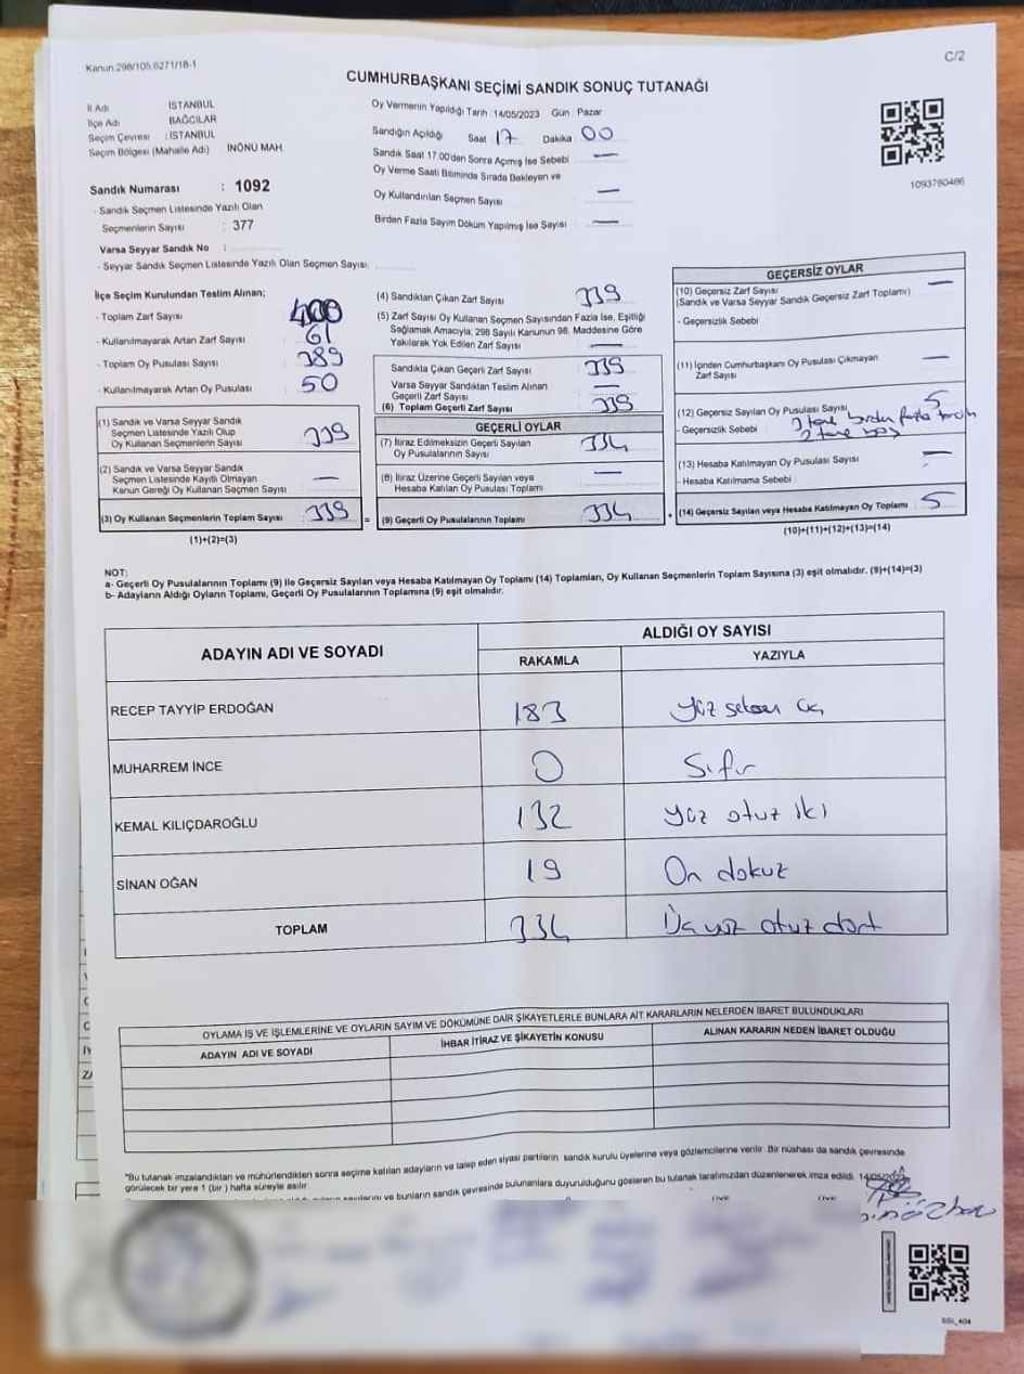 Kanun:298/105,6271/18-1
C/2
CUMHURBAŞKANI SEÇİMİ SANDIK SONUÇ TUTANAĞI
İl Adı İSTANBUL
İlçe Adı BAĞCILAR
Seçim Çevresi : İSTANBUL
Seçim Bölgesi (Mahalle Adı) İNÖNÜ MAH
Sandık Numarası : 1092
- Sandık Seçmen Listesinde Yazılı Olan
Seçmenlerin Sayısı : 377
Varsa Seyyar Sandık No :
- Seyyar Sandık Seçmen Listesinde Yazılı Olan Seçmen Sayısı:
Oy Vermenin Yapıldığı Tarih : 14/05/2023 Gün : Pazar
Sandığın Açıldığı Saat 17 Dakika 00
Sandık Saat 17.00'den Sonra Açımış İse Sebebi —
Oy Verme Saati Bitiminde Sırada Bekleyen ve
Oy Kullandırılan Seçmen Sayısı —
Birden Fazla Sayım Döküm Yapılmış İse Sayısı —
1093780486
İlçe Seçim Kurulundan Teslim Alınan;
- Toplam Zarf Sayısı 400
- Kullanılmayarak Artan Zarf Sayısı 61
- Toplam Oy Pusulası Sayısı 389
- Kullanılmayarak Artan Oy Pusulası 50
(1) Sandık ve Varsa Seyyar Sandık
Seçmen Listesinde Yazılı Olup
Oy Kullanan Seçmenlerin Sayısı 339
(2) Sandık ve Varsa Seyyar Sandık
Seçmen Listesinde Kayıtlı Olmayan
Kanun Gereği Oy Kullanan Seçmen Sayısı —
(3) Oy Kullanan Seçmenlerin Toplam Sayısı 339
(1)+(2)=(3)
(4) Sandıktan Çıkan Zarf Sayısı 339
(5) Zarf Sayısı Oy Kullanan Seçmen Sayısından Fazla İse, Eşitliği
Sağlamak Amacıyla; 298 Sayılı Kanunun 98. Maddesine Göre
Yakılarak Yok Edilen Zarf Sayısı —
Sandıkta Çıkan Geçerli Zarf Sayısı 339
Varsa Seyyar Sandıktan Teslim Alınan
Geçerli Zarf Sayısı —
(6) Toplam Geçerli Zarf Sayısı 339
GEÇERLİ OYLAR
(7) İtiraz Edilmeksizin Geçerli Sayılan
Oy Pusulalarının Sayısı 334
(8) İtiraz Üzerine Geçerli Sayılan veya
Hesaba Katılan Oy Pusulası Toplamı —
= (9) Geçerli Oy Pusulalarının Toplamı 334
GEÇERSİZ OYLAR
(10) Geçersiz Zarf Sayısı —
(Sandık ve Varsa Seyyar Sandık Geçersiz Zarf Toplamı)
- Geçersizlik Sebebi
(11) İçinden Cumhurbaşkanı Oy Pusulası Çıkmayan
Zarf Sayısı —
(12) Geçersiz Sayılan Oy Pusulası Sayısı 5
- Geçersizlik Sebebi 3 tane birden fazla tercih
2 tane boş
(13) Hesaba Katılmayan Oy Pusulası Sayısı —
- Hesaba Katılmama Sebebi
+ (14) Geçersiz Sayılan veya Hesaba Katılmayan Oy Toplamı 5
(10)+(11)+(12)+(13)=(14)
NOT:
a- Geçerli Oy Pusulalarının Toplamı (9) ile Geçersiz Sayılan veya Hesaba Katılmayan Oy Toplamı (14) Toplamları, Oy Kullanan Seçmenlerin Toplam Sayısına (3) eşit olmalıdır. (9)+(14)=(3)
b- Adayların Aldığı Oyların Toplamı, Geçerli Oy Pusulalarının Toplamına (9) eşit olmalıdır.
ADAYIN ADI VE SOYADI
ALDIĞI OY SAYISI
RAKAMLA YAZIYLA
RECEP TAYYİP ERDOĞAN 183 yüz seksen üç
MUHARREM İNCE 0 Sıfır
KEMAL KILIÇDAROĞLU 132 yüz otuz iki
SİNAN OĞAN 19 On dokuz
TOPLAM 334 Üç yüz otuz dört
OYLAMA İŞ VE İŞLEMLERİNE VE OYLARIN SAYIM VE DÖKÜMÜNE DAİR ŞİKAYETLERLE BUNLARA AİT KARARLARIN NELERDEN İBARET BULUNDUKLARI
ADAYIN ADI VE SOYADI İHBAR İTİRAZ VE ŞİKAYETİN KONUSU ALINAN KARARIN NEDEN İBARET OLDUĞU
*Bu tutanak imzalandıktan ve mühürlendikten sonra seçime katılan adayların ve talep eden siyasi partilerin sandık kurulu üyelerine veya gözlemcilerine verilir. Bir nüshası da sandık çevresinde
görülecek bir yere 1 (bir) hafta süreyle asılır.
sayılarını ve bunların sandık çevresinde bulunanlara duyurulduğunu gösteren bu tutanak tarafımızdan düzenlenerek imza edildi.
ÜYE ÜYE